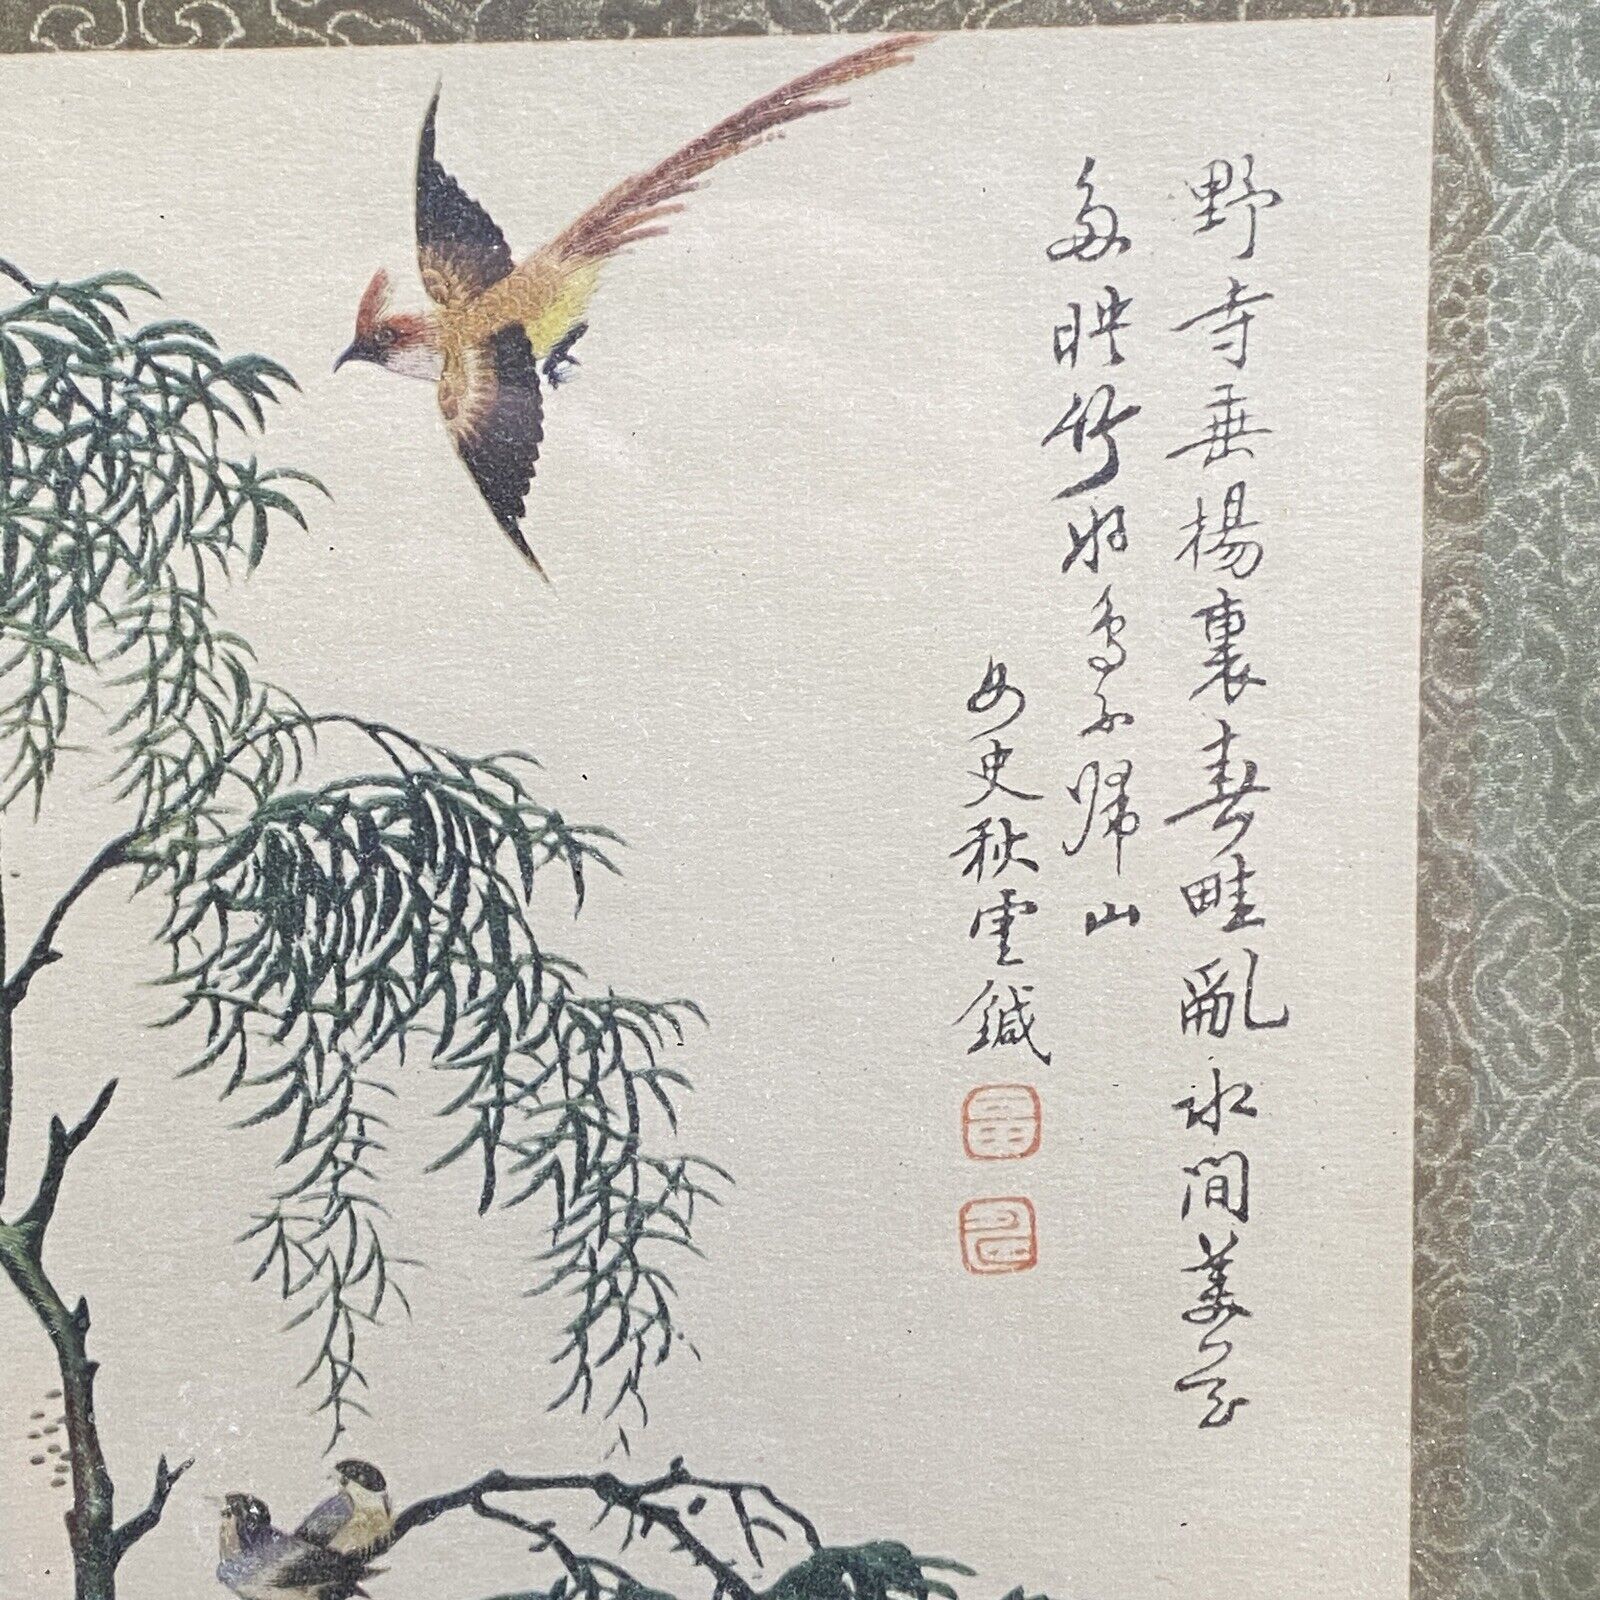 野寺垂楊裏春畦亂水間美花
多映竹好鳥不歸山
女史秋雲鍼